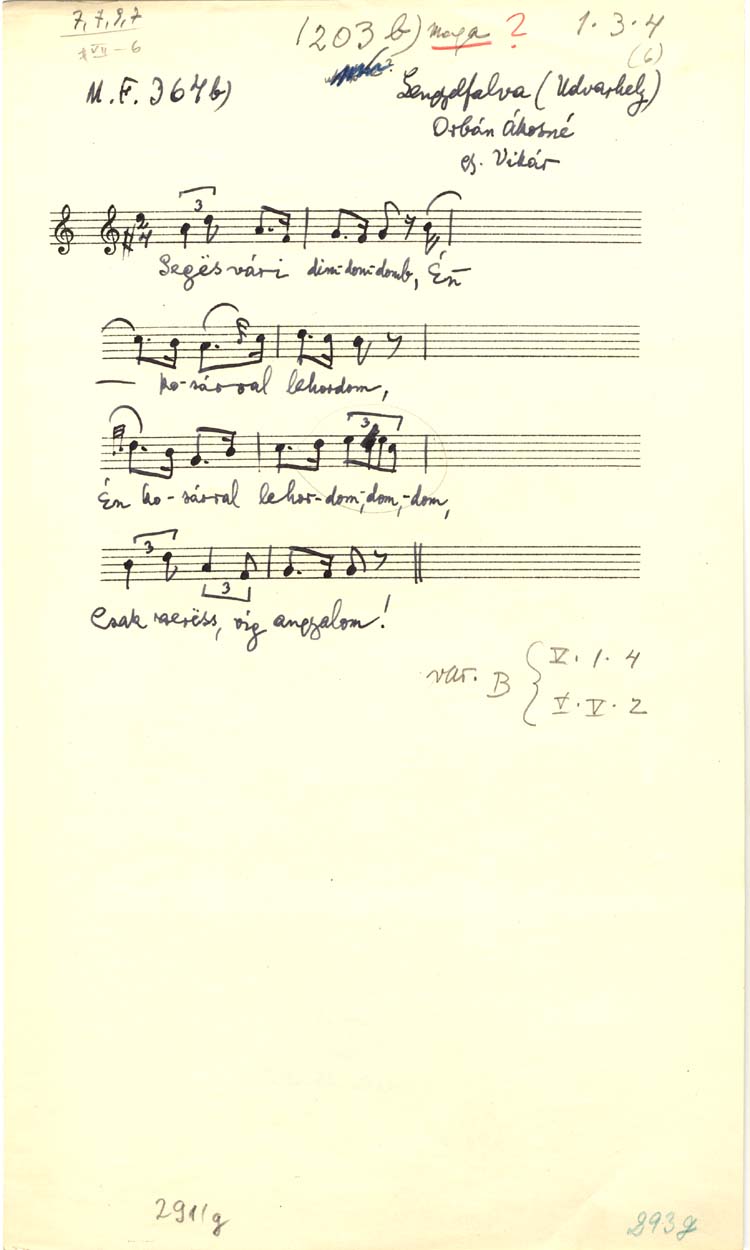 7, 7, 9, 7
VII - 6
1203 b) maga ?
1. 3. 4
(6)
M. F. 367 b)
Lengyelfalva (Udvarhely)
Orbán Ákosné
gy. Vikár
3
2/4
Segësvári dim-dom-domb, Én
— ko-sárral lehordom,
3
Én ko-sárral lehor-dom,-dom,-dom,
3
3
Csak szeress, víg angyalom!
var. B { V. 1. 4
V. V. 2
2911g
293g